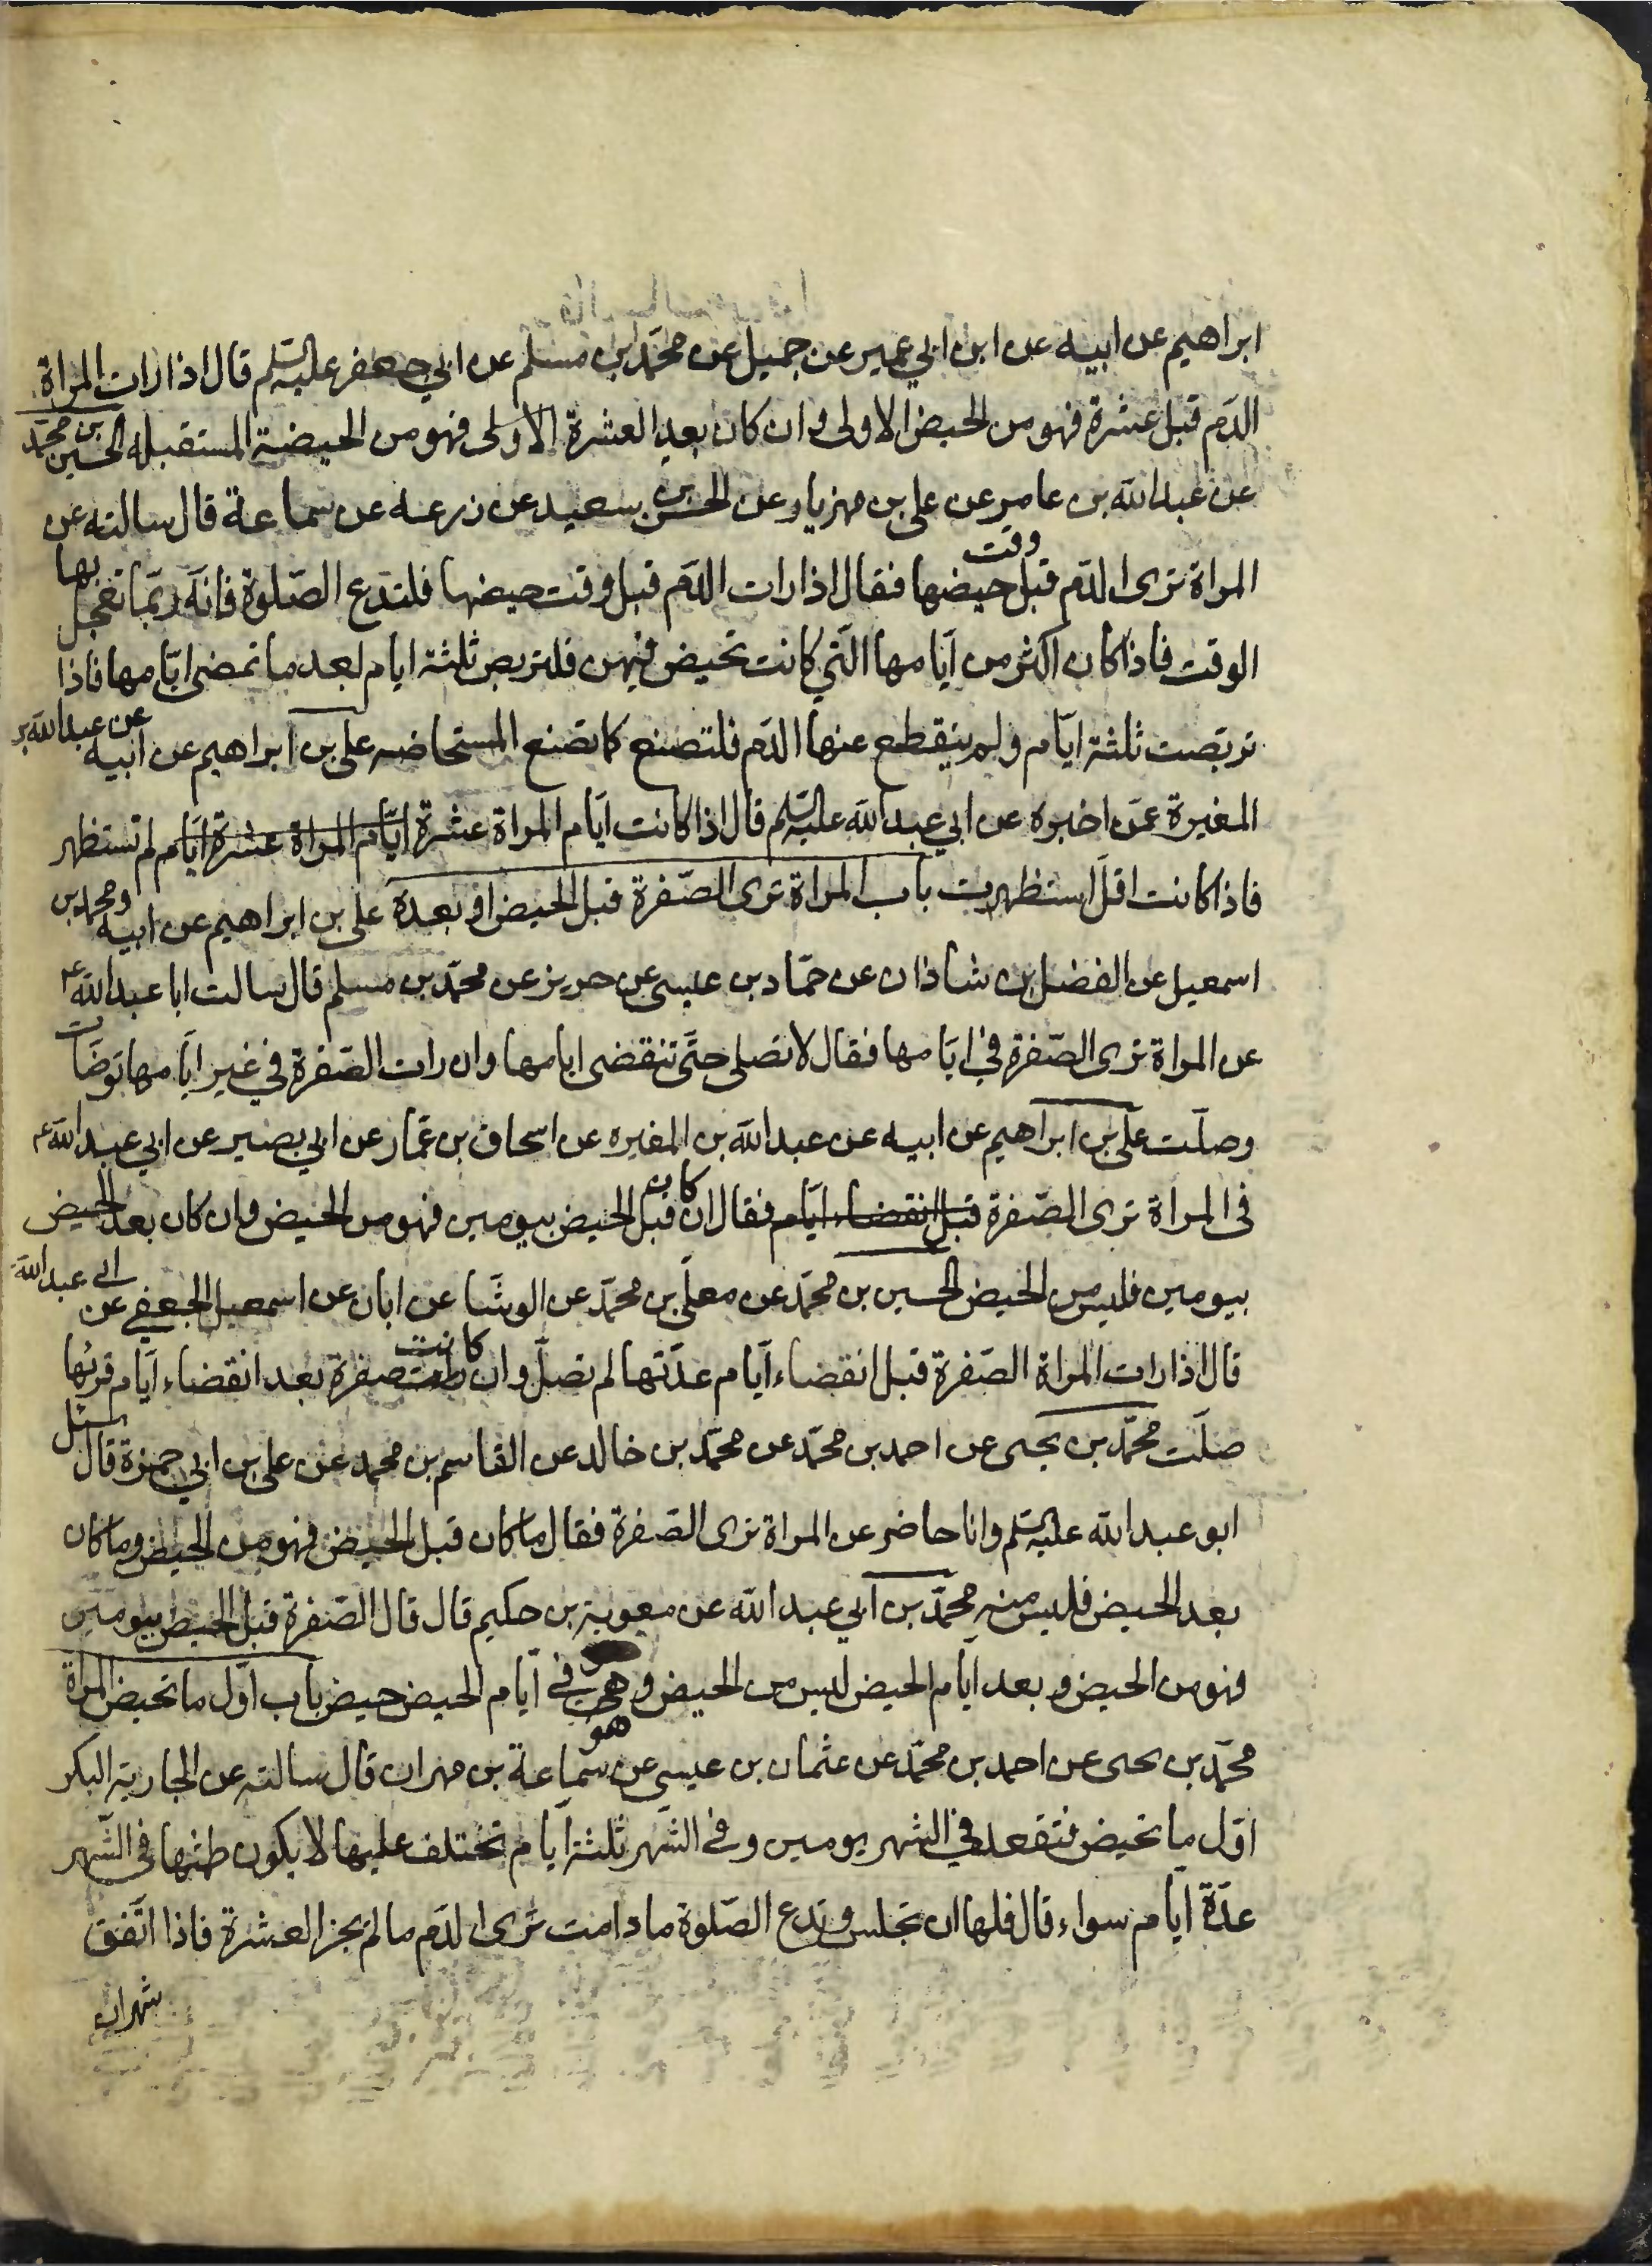 ابراهيم عن ابيه عن ابن ابي عمير عن جميل عن محمّد بن مسلم عن ابي جعفر عليه السّلم قال اذا رات المراة
الدّم قبل عشرة فهو من الحيض الاولى وان كان بعد العشرة الاولى فهو من الحيضة المستقبله الحسين بن محمّد
عن عبد الله بن عامر عن علي بن مهزيار عن الحسن بن سعيد عن زرعه عن سماعة قال سالته عن
المراة ترى الدّم قبل وقت حيضها فقال اذا رات الدّم قبل وقت حيضها فلتدع الصّلوة فانّه ربّما تعجل بها
الوقت فاذا كان اكثر من ايّامها الّتي كانت تحيض فيهن فلتربص ثلثة ايام بعد ما تمضى ايّامها فاذا
تربّصت ثلثة ايّام ولم ينقطع عنها الدّم فلتصنع كما تصنع المستحاضه علي بن ابراهيم عن ابيه عن عبد الله بن
المغيرة عمّن اخبره عن ابي عبد الله عليه السّلم قال اذا كانت ايّام المراة عشرة ايّام المراة عشرة ايّام لم تستظهر
فاذا كانت اقلّ استظهرت باب المراة ترى الصّفرة قبل الحيض او بعده علي بن ابراهيم عن ابيه ومحمد بن
اسمعيل عن الفضل بن شاذان عن حمّاد بن عيسى عن حريز عن محمّد بن مسلم قال سالت ابا عبد الله ع
عن المراة ترى الصّفرة في ايّامها فقال لا تصلى حتّى تنقضى ايامها وان رات الصّفرة في غير ايّامها توضّات
وصلّت علي بن ابراهيم عن ابيه عن عبد الله بن المغيره عن اسحاق بن عمّار عن ابي بصير عن ابي عبد الله ع
فى المراة ترى الصّفرة قبل انقضاء ايّام فقال ان كان قبل الحيض بيومين فهو من الحيض وان كان بعد الحيض
بيومين فليس من الحيض الحسين بن محمّد عن معلّى بن محمّد عن الوشّا عن ابان عن اسمعيل الجعفي عن ابى عبد الله
قال اذا رات المراة الصّفرة قبل انقضاء ايّام عدّتها لم تصلّ وان كانت صفرة بعد انقضاء ايّام قرئها
صلّت محمّد بن يحيى عن احمد بن محمّد عن محمّد بن خالد عن القاسم بن محمد عن علي بن ابي حمزة قال سئل
ابو عبد الله عليه السّلم وانا حاضر عن المراة ترى الصّفرة فقال ما كان قبل الحيض فهو من الحيض وما كان
بعد الحيض فليس منه محمّد بن ابي عبد الله عن معوية بن حكيم قال قال الصّفرة قبل الحيض بيومين
فهو من الحيض وبعد ايّام الحيض ليس من الحيض وهى في ايّام الحيض حيض باب اوّل ما تحيض المراة
محمّد بن يحيى عن احمد بن محمّد عن عثمان بن عيسى عن سماعة بن مهران قال سالته عن الجارية البكر
اوّل ما تحيض فتقعد في الشهر يومين وفي الشّهر ثلثة ايّام تختلف عليها لا يكون طمثها فى الشّهر
عدّة ايّام سواء قال فلها ان تجلس وتدع الصّلوة ما دامت ترى الدّم ما لم يجز العشرة فاذا اتّفق
شهران